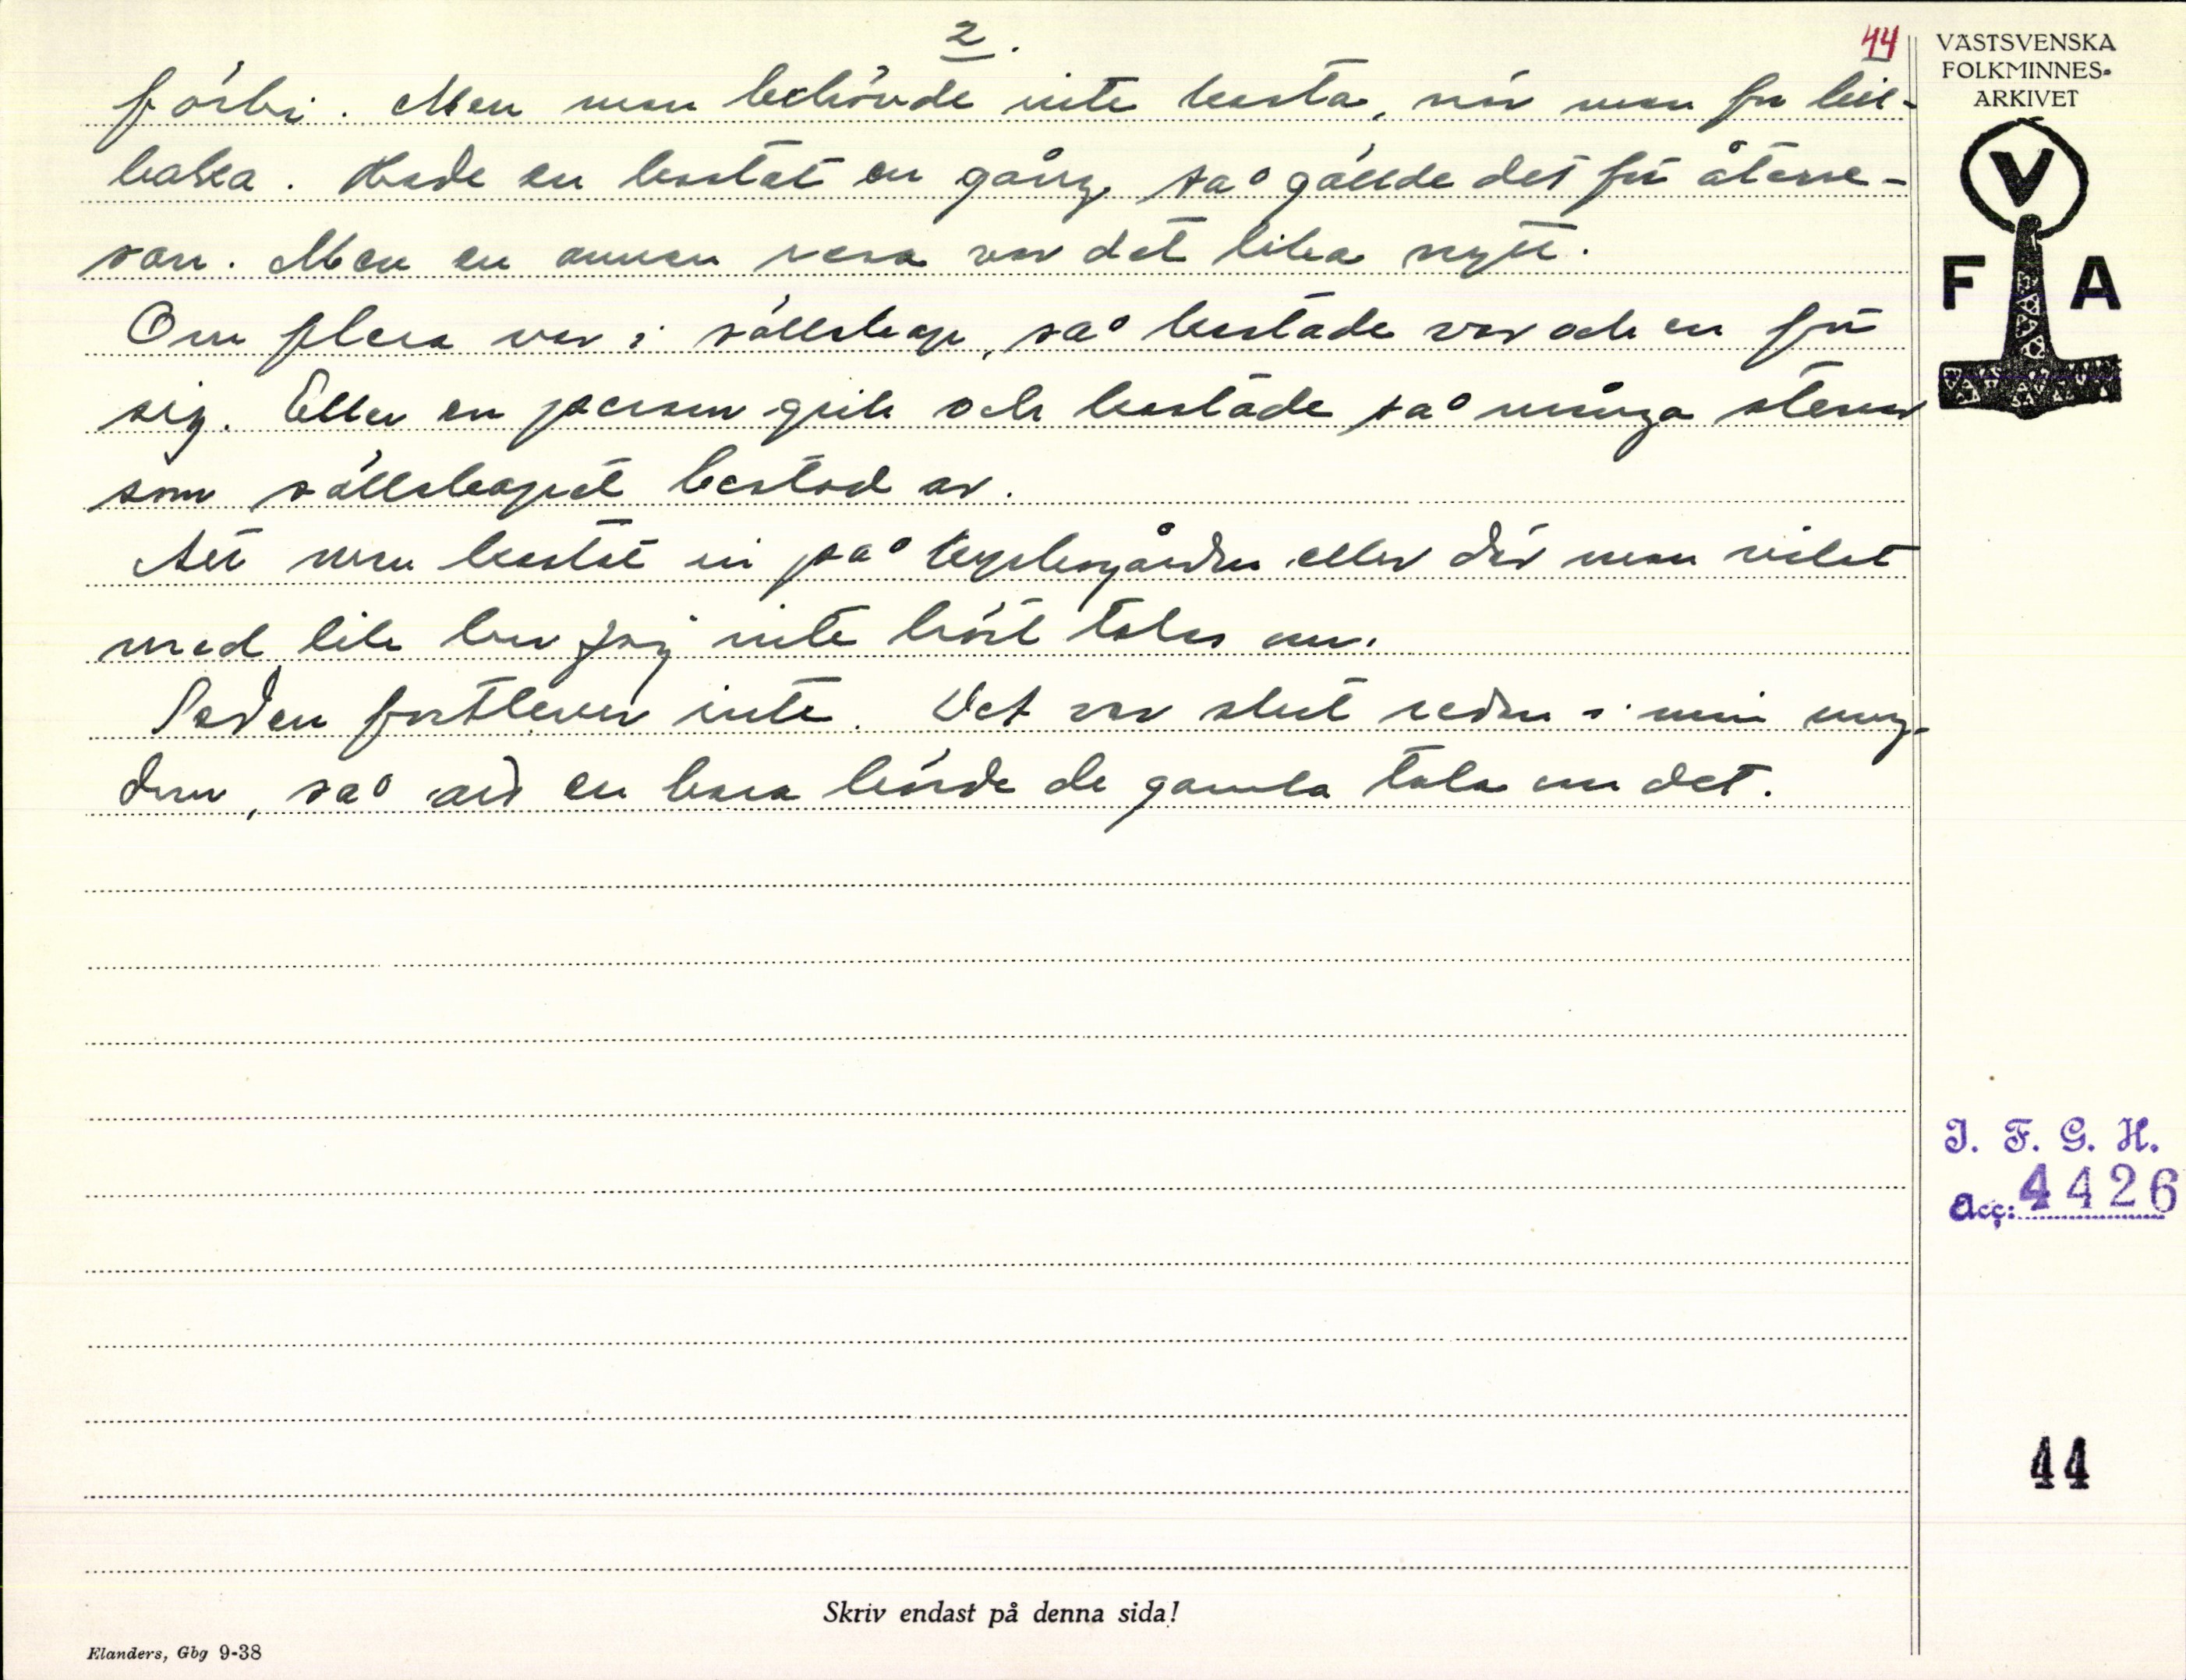 2.
44
förbi. Men man behövde inte kasta, när man for till-
baka. Hade en kastat en gång så gällde det för återre-
san. Men en annan resa var det lika nytt.
Om flera var i sällskap, så kastade var och en för
sig. Eller en person gick och kastade så många stenar
som sällskapet bestod av.
Att man kastat in på kyrkogården eller där man vilat
med lik har jag inte hört talas om.
Seden fortlever inte. Det var slut redan i min ung-
dom, så att en bara hörde de gamla tala om det.
VÄSTSVENSKA
FOLKMINNES-
ARKIVET
V
F A
I. F. G. H.
Acc: 4426
44
Skriv endast på denna sida!
Elanders, Gbg 9-38